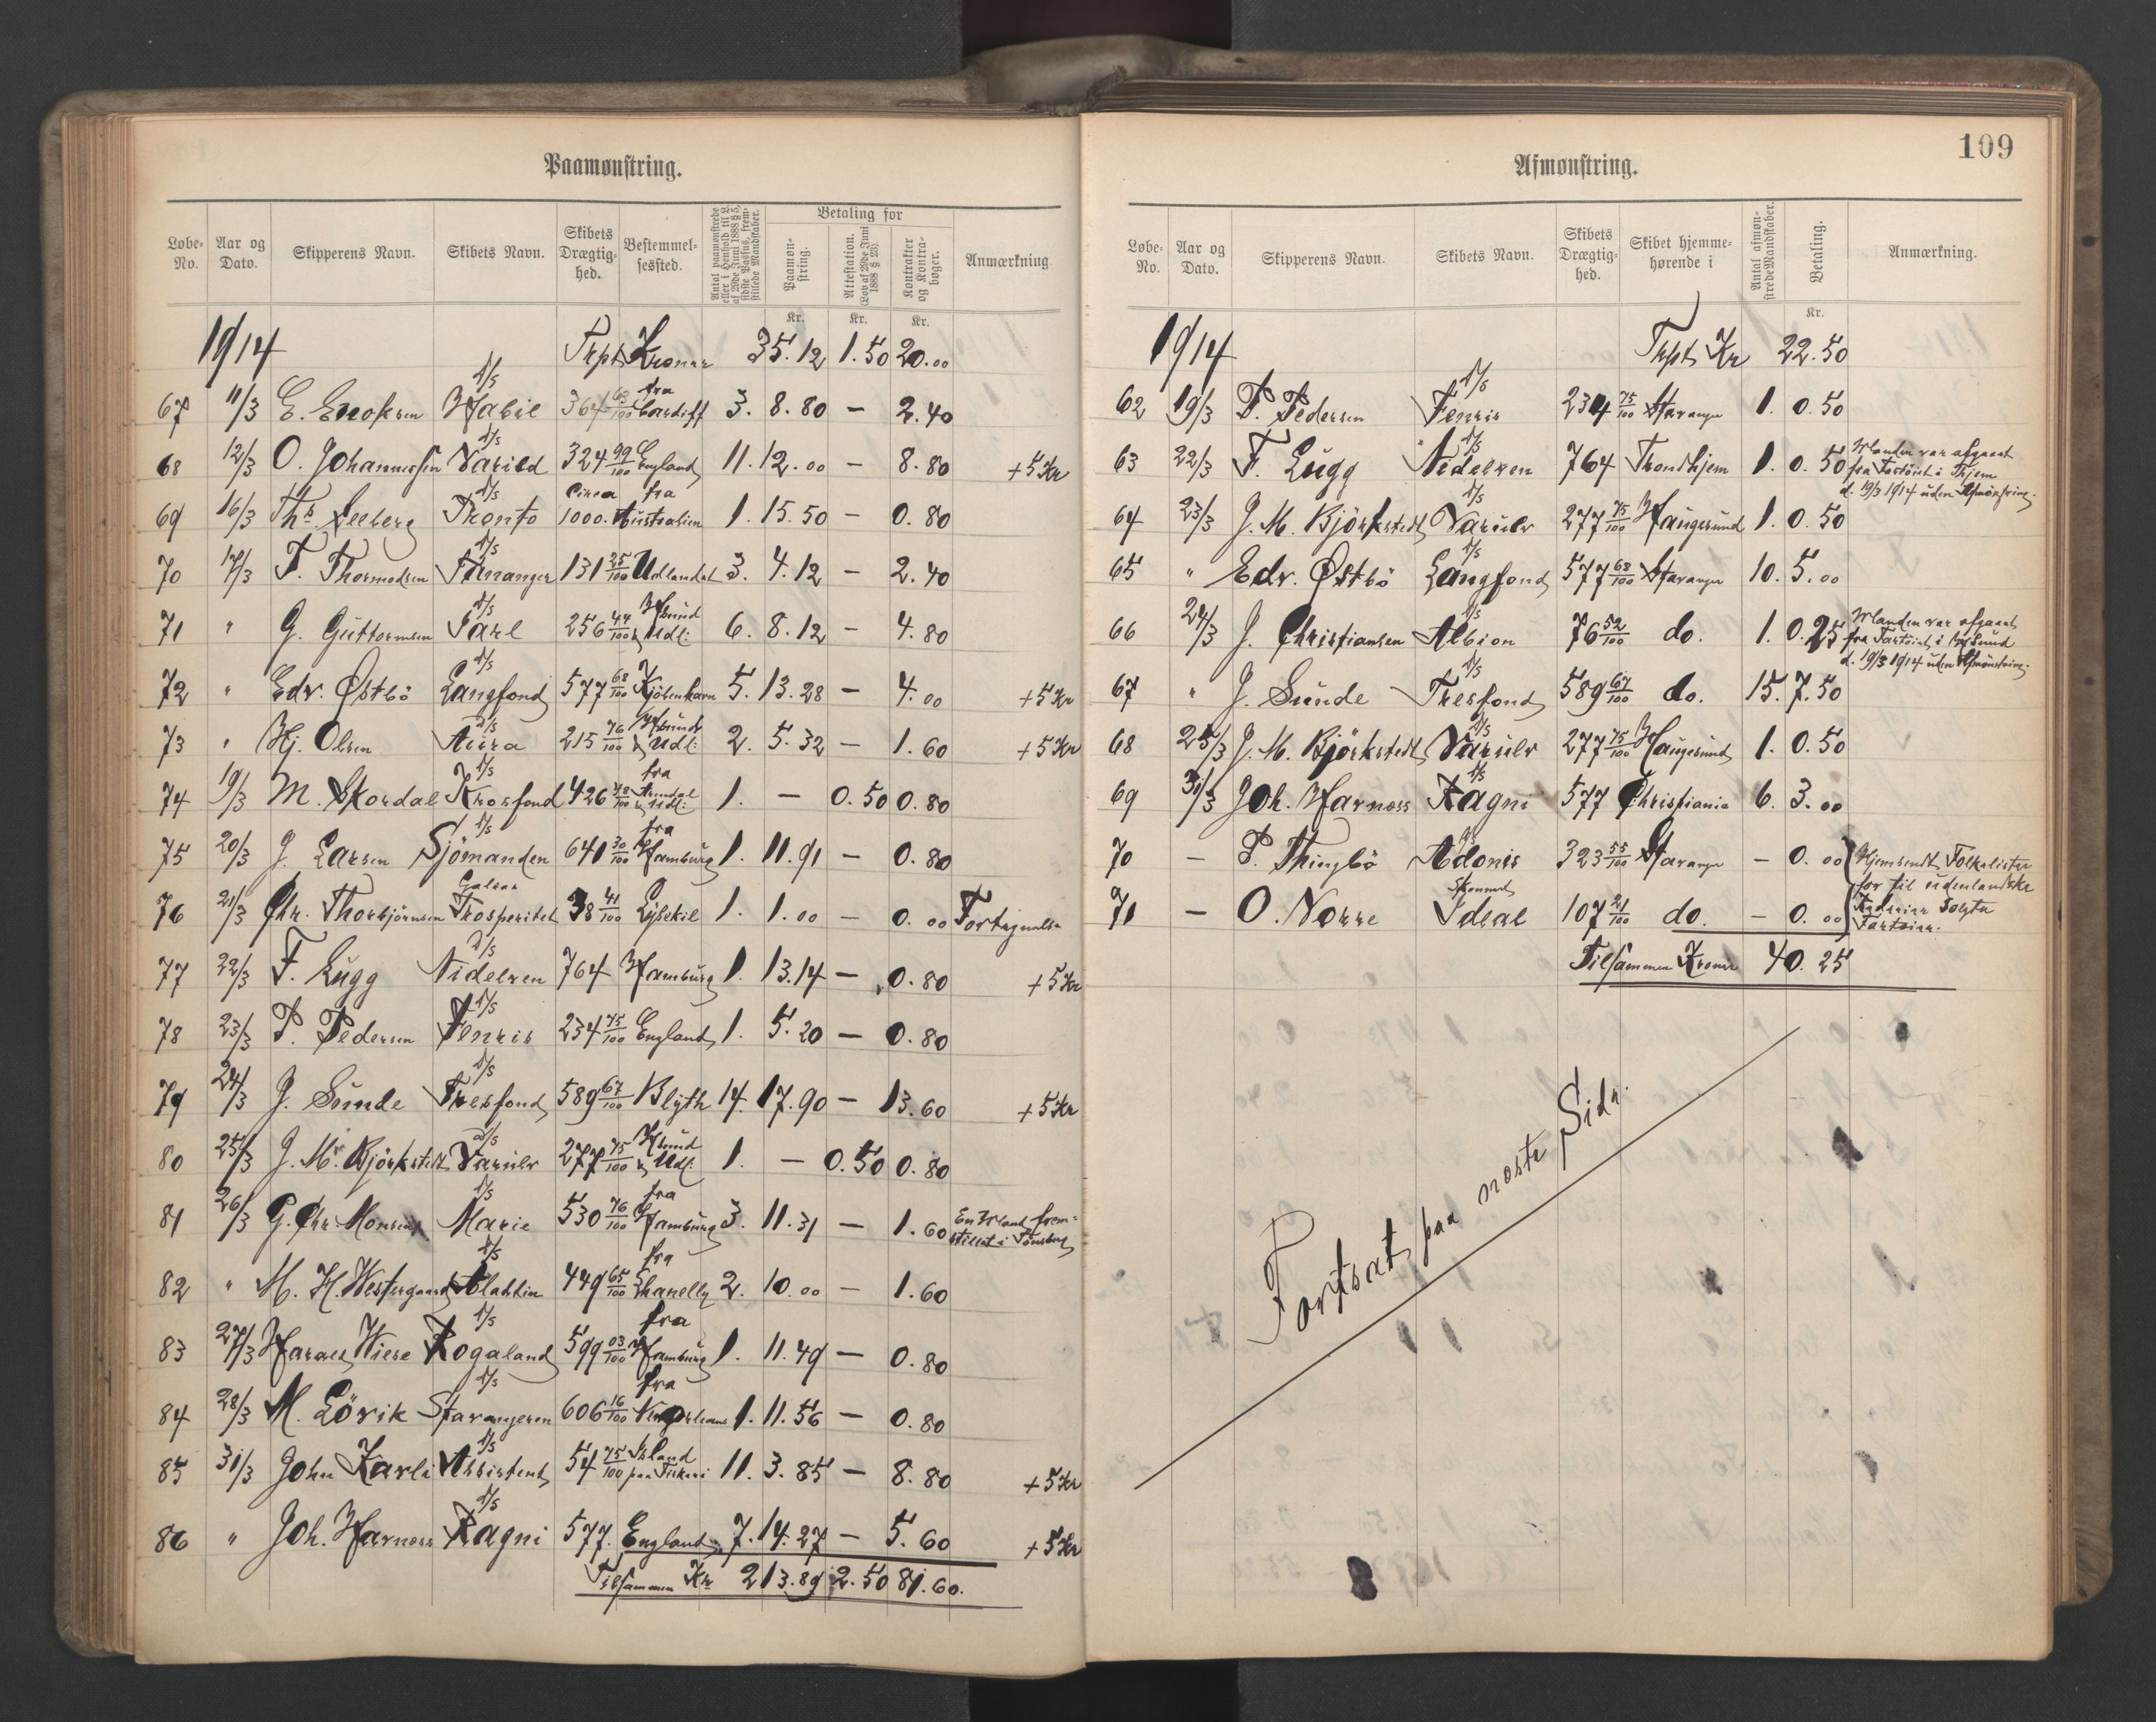 Paamønstring.
Løbe-No. Aar og Dato. Skipperens Navn. Skibets Navn. Skibets Drægtig-hed. Bestemmel-sessted. Antal paamønstrede eller i Henhold til L. af 29de Juni 1888 § 5, sidste Passus, frem-stillede Mandskaber. Betaling for Paamøn-string. Attestation. (Lov af 29de Juni 1888 § 23). Kontrakter og Kontra-bøger. Anmærkning
Kr. Kr. Kr.
1914 Trpt. Kroner 35.12 1.50 20.00
67 11/3 E. Enoksen D/s Habil 364 63/100 fra Cardiff 3. 8.80 — 2.40
68 12/3 O. Johannessen D/s Varild 324 99/100 England 11. 12.00 — 8.80 +5 Kr
69 16/3 Thr. Seeberg D/s Pronto Circa 1000. fra Australien 1. 15.50 — 0.80
70 17/3 T. Thormodsen D/s Tananger 131 25/100 Udlandet 3. 4.12 — 2.40
71 " G. Guttormsen D/s Jarl 256 44/100 Hsund & Udl: 6. 8.12 — 4.80
72 " Edv. Østbö D/s Langfond 577 68/100 Kjöbenhavn 5. 13.28 — 4.00 +5 Kr
73 " Hj. Olsen D/s Aura 215 76/100 Hsund & Udl: 2. 5.32 — 1.60 +5 Kr
74 19/3 M. Skordal D/s Krosfond 426 48/100 fra Arendal & Udl: 1. — 0.50 0.80
75 20/3 J. Larsen D/s Sjömanden 641 30/100 fra Hamburg 1. 11.91 — 0.80
76 21/3 Chr. Thorbjörnsen Galeas Prosperitet 38 41/100 Lysekil 1. 1.00 — 0.00 Fortegnelse
77 22/3 F. Lugg D/s Nidelven 764 Hamburg 1. 13.14 — 0.80 +5 Kr
78 23/3 P. Pedersen D/s Fenris 234 75/100 England 1. 5.20 — 0.80
79 24/3 J. Sunde D/s Tresfond 589 67/100 Blyth 14. 17.90 — 13.60 +5 Kr
80 25/3 J. M. Björkstedt D/s Varulv 277 75/100 Hsund & Udl: 1. — 0.50 0.80
81 26/3 G. Chr. Monsen D/s Marie 530 76/100 fra Hamburg 3. 11.31 — 1.60 En Mand frem-stillet i Tönsberg
82 " M. H. Westergaard D/s 449 65/100 fra Lhanelly 2. 10.00 — 1.60
83 27/3 Harald Wiese D/s Rogaland 599 03/100 fra Hamburg 1. 11.49 — 0.80
84 28/3 M. Lövik D/s Stavangeren 606 16/100 fra 1. 11.56 — 0.80
85 31/3 John Karls D/s Assistent 54 75/100 Island paa Fiskeri 11. 3.85 — 8.80 +5 Kr
86 " Joh. Harness D/s Ragni 577. England 7. 14.27 — 5.60 +5 Kr
Tilsammen Kr 213.89 2.50 81.60.
109
Afmønstring.
Løbe-No. Aar og Dato. Skipperens Navn. Skibets Navn. Skibets Drægtig-hed. Skibet hjemme-hørende i Antal afmøn-strede Mandskaber. Betaling. Anmærkning.
Kr.
1914 Trpt. Kr 22.50
62 19/3 P. Pedersen D/s Fenris 234 75/100 Stavanger 1. 0.50
63 22/3 F. Lugg D/s Nidelven 764 Trondhjem 1. 0.50 Manden var afgaaet fra Fartöiet i Thjem d. 19/3 1914 uden Afmönstring.
64 23/3 J. M. Björkstedt D/s Varulv 277 75/100 Haugesund 1. 0.50
65 " Edv. Østbö D/s Langfond 577 68/100 Stavanger 10. 5.00
66 24/3 J. Christiansen D/s Albion 76 52/100 do. 1. 0.25 Manden var afgaaet fra Fartöiet i Hgsund d. 19/3 1914 uden Afmönstring.
67 " J. Sunde D/s Tresfond 589 67/100 do. 15. 7.50
68 25/3 J. M. Björkstedt D/s Varulv 277 75/100 Haugesund 1. 0.50
69 31/3 Joh. Harness D/s Ragni 577 Christiania 6. 3.00
70 — P. Thingbö Adonis 323 55/100 Stavanger — 0.00 Hjemsendt Folkelister
71 — O. Norre Skonnert Ideal 107 21/100 do. — 0.00 for til udenlandske Rederier Solgte Fartöier.
Tilsammen Kroner 40.25
Fortsat paa næste Side.